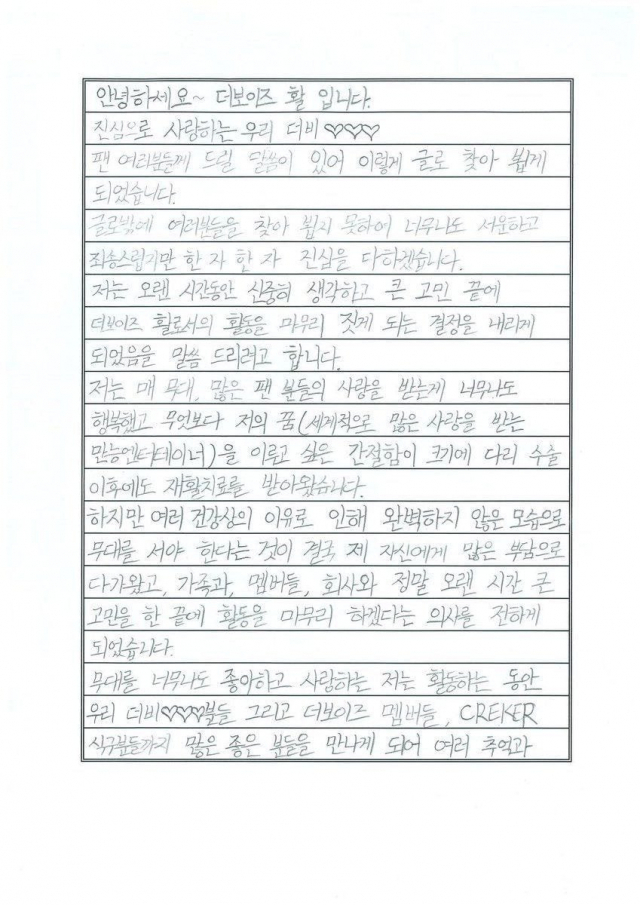 안녕하세요~ 더보이즈 활 입니다.
진심으로 사랑하는 우리 더비♡♡♡
팬 여러분들께 드릴 말씀이 있어 이렇게 글로 찾아 뵙게
되었습니다.
글로밖에 여러분들을 찾아 뵙지 못하여 너무나도 서운하고
죄송스럽지만 한 자 한 자 진심을 다하겠습니다.
저는 오랜 시간동안 신중히 생각하고 큰 고민 끝에
더보이즈 활로서의 활동을 마무리 짓게 되는 결정을 내리게
되었음을 말씀 드리려고 합니다.
저는 매 무대, 많은 팬 분들의 사랑을 받는게 너무나도
행복했고 무엇보다 저의 꿈(세계적으로 많은 사랑을 받는
만능엔터테이너)을 이루고 싶은 간절함이 크기에 다리 수술
이후에도 재활치료를 받아왔습니다.
하지만 여러 건강상의 이유로 인해 완벽하지 않은 모습으로
무대를 서야 한다는 것이 결국 제 자신에게 많은 부담으로
다가왔고, 가족과, 멤버들, 회사와 정말 오랜 시간 큰
고민을 한 끝에 활동을 마무리 하겠다는 의사를 전하게
되었습니다.
무대를 너무나도 좋아하고 사랑하는 저는 활동하는 동안
우리 더비♡♡♡분들 그리고 더보이즈 멤버들, CREKER
식구분들까지 많은 좋은 분들을 만나게 되어 여러 추억과